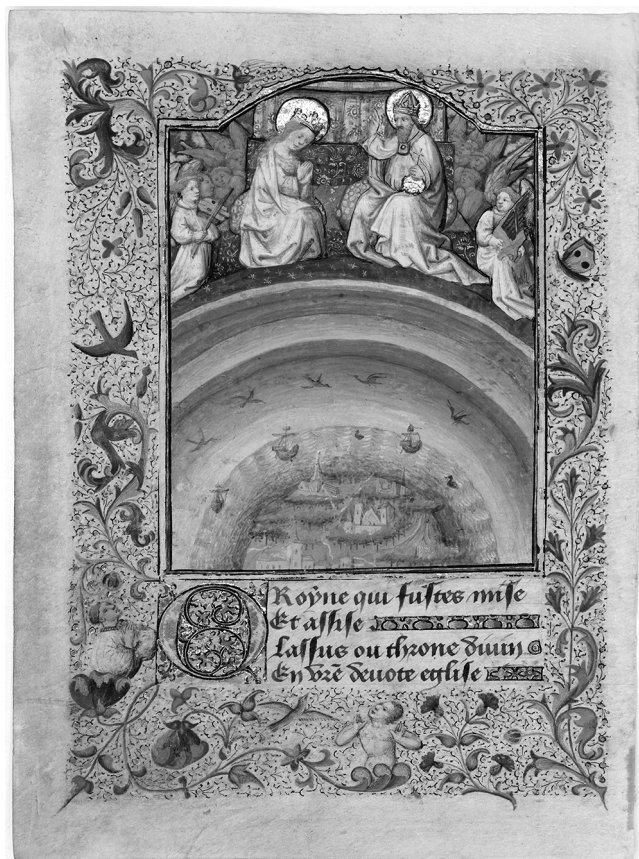 O Roÿne qui fustes mise
Et assise
Lassus ou throne divin
En vr̄e devote eglise